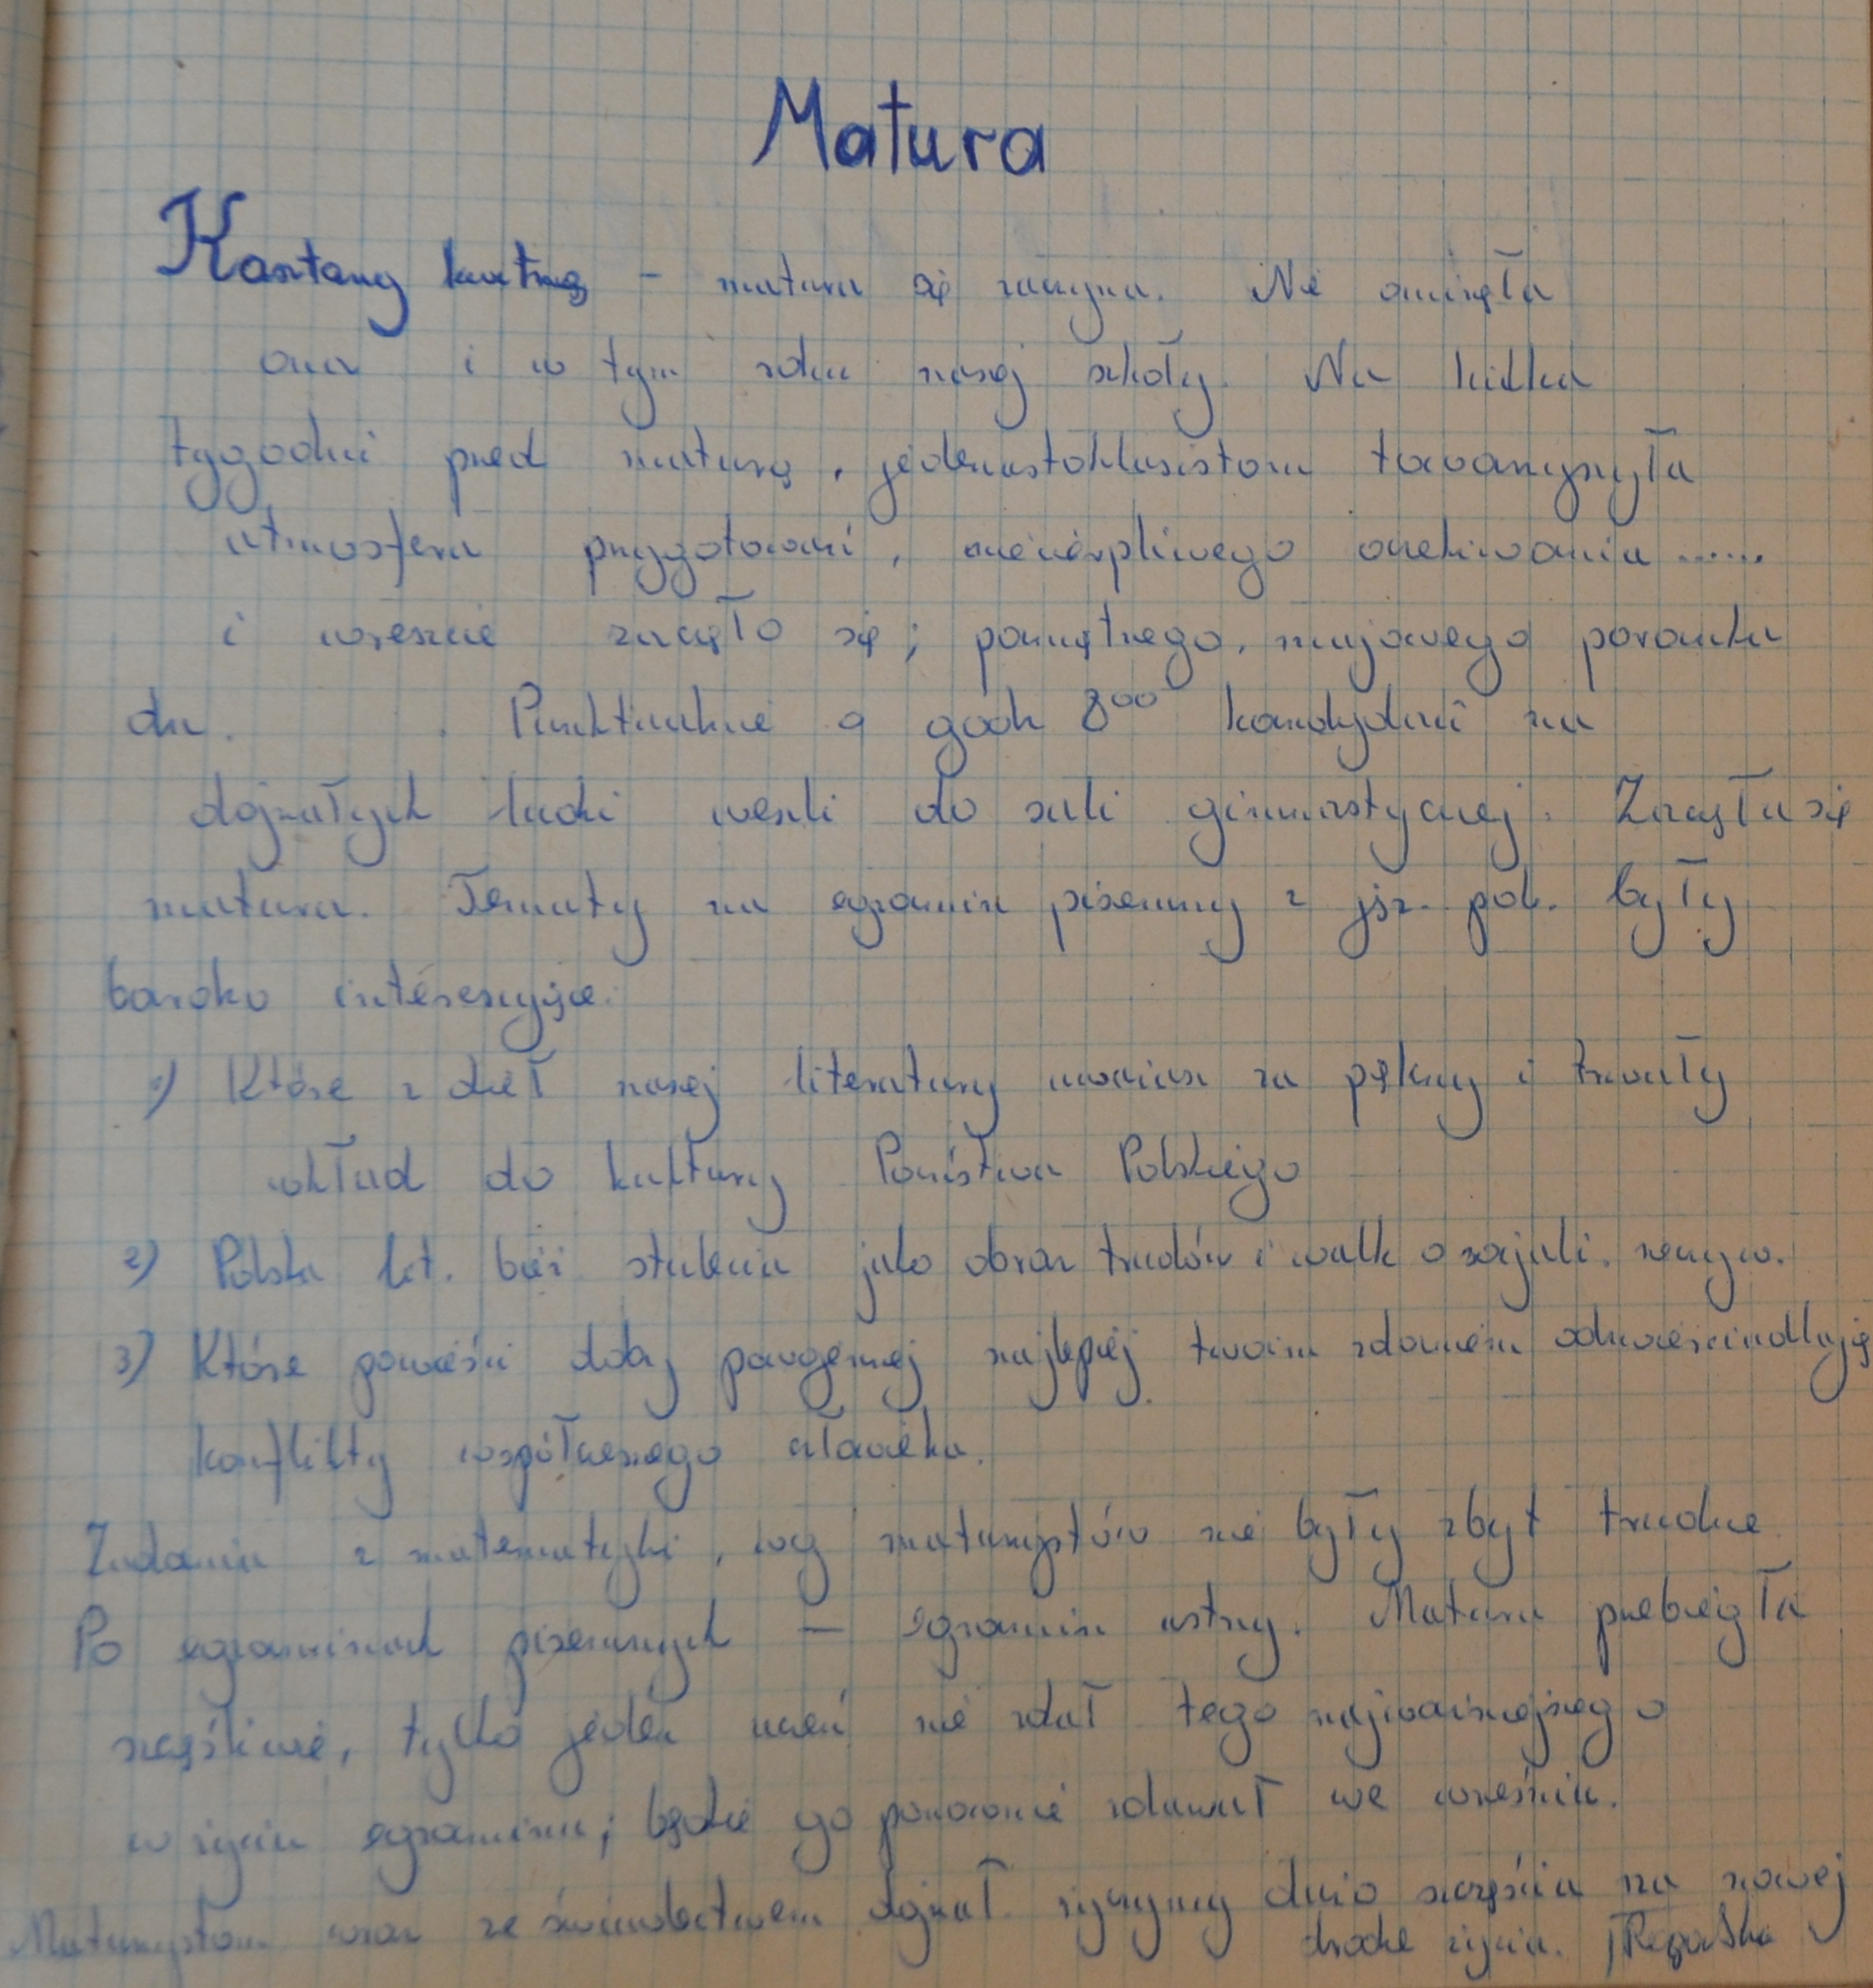 Matura
Kasztany kwitną - matura się zaczyna. Nie ominęła
ona i w tym roku naszej szkoły. Na kilka
tygodni przed maturą, jedenastoklasistom towarzyszyła
atmosfera przygotowań, niecierpliwego oczekiwania ......
i wreszcie zaczęło się; pamiętnego, majowego poranka
dn. . Punktualnie o godz 8⁰⁰ kandydaci na
dojrzałych ludzi weszli do sali gimnastycznej. Zaczęła się
matura. Tematy na egzamin pisemny z jęz. pol. były
bardzo interesujące.
1) Które z dzieł naszej literatury uważasz za piękny i trwały
wkład do kultury Państwa Polskiego
2) Polska lit. bież. stulecia jako obraz trudów i walk o socjali.
3) Które powieści doby powojennej najlepiej twoim zdaniem odzwierciedlają
konflikty współczesnego człowieka.
Zadania z matematyki, wg maturzystów nie były zbyt trudne
Po egzaminach pisemnych - egzamin ustny. Matura przebiegła
szczęśliwie, tylko jeden uczeń nie zdał tego najważniejszego
w życiu egzaminu; będzie go ponownie zdawał we wrześniu.
Maturzystom wraz ze świadectwem dojrzał. życzymy dużo szczęścia na nowej
drodze życia.